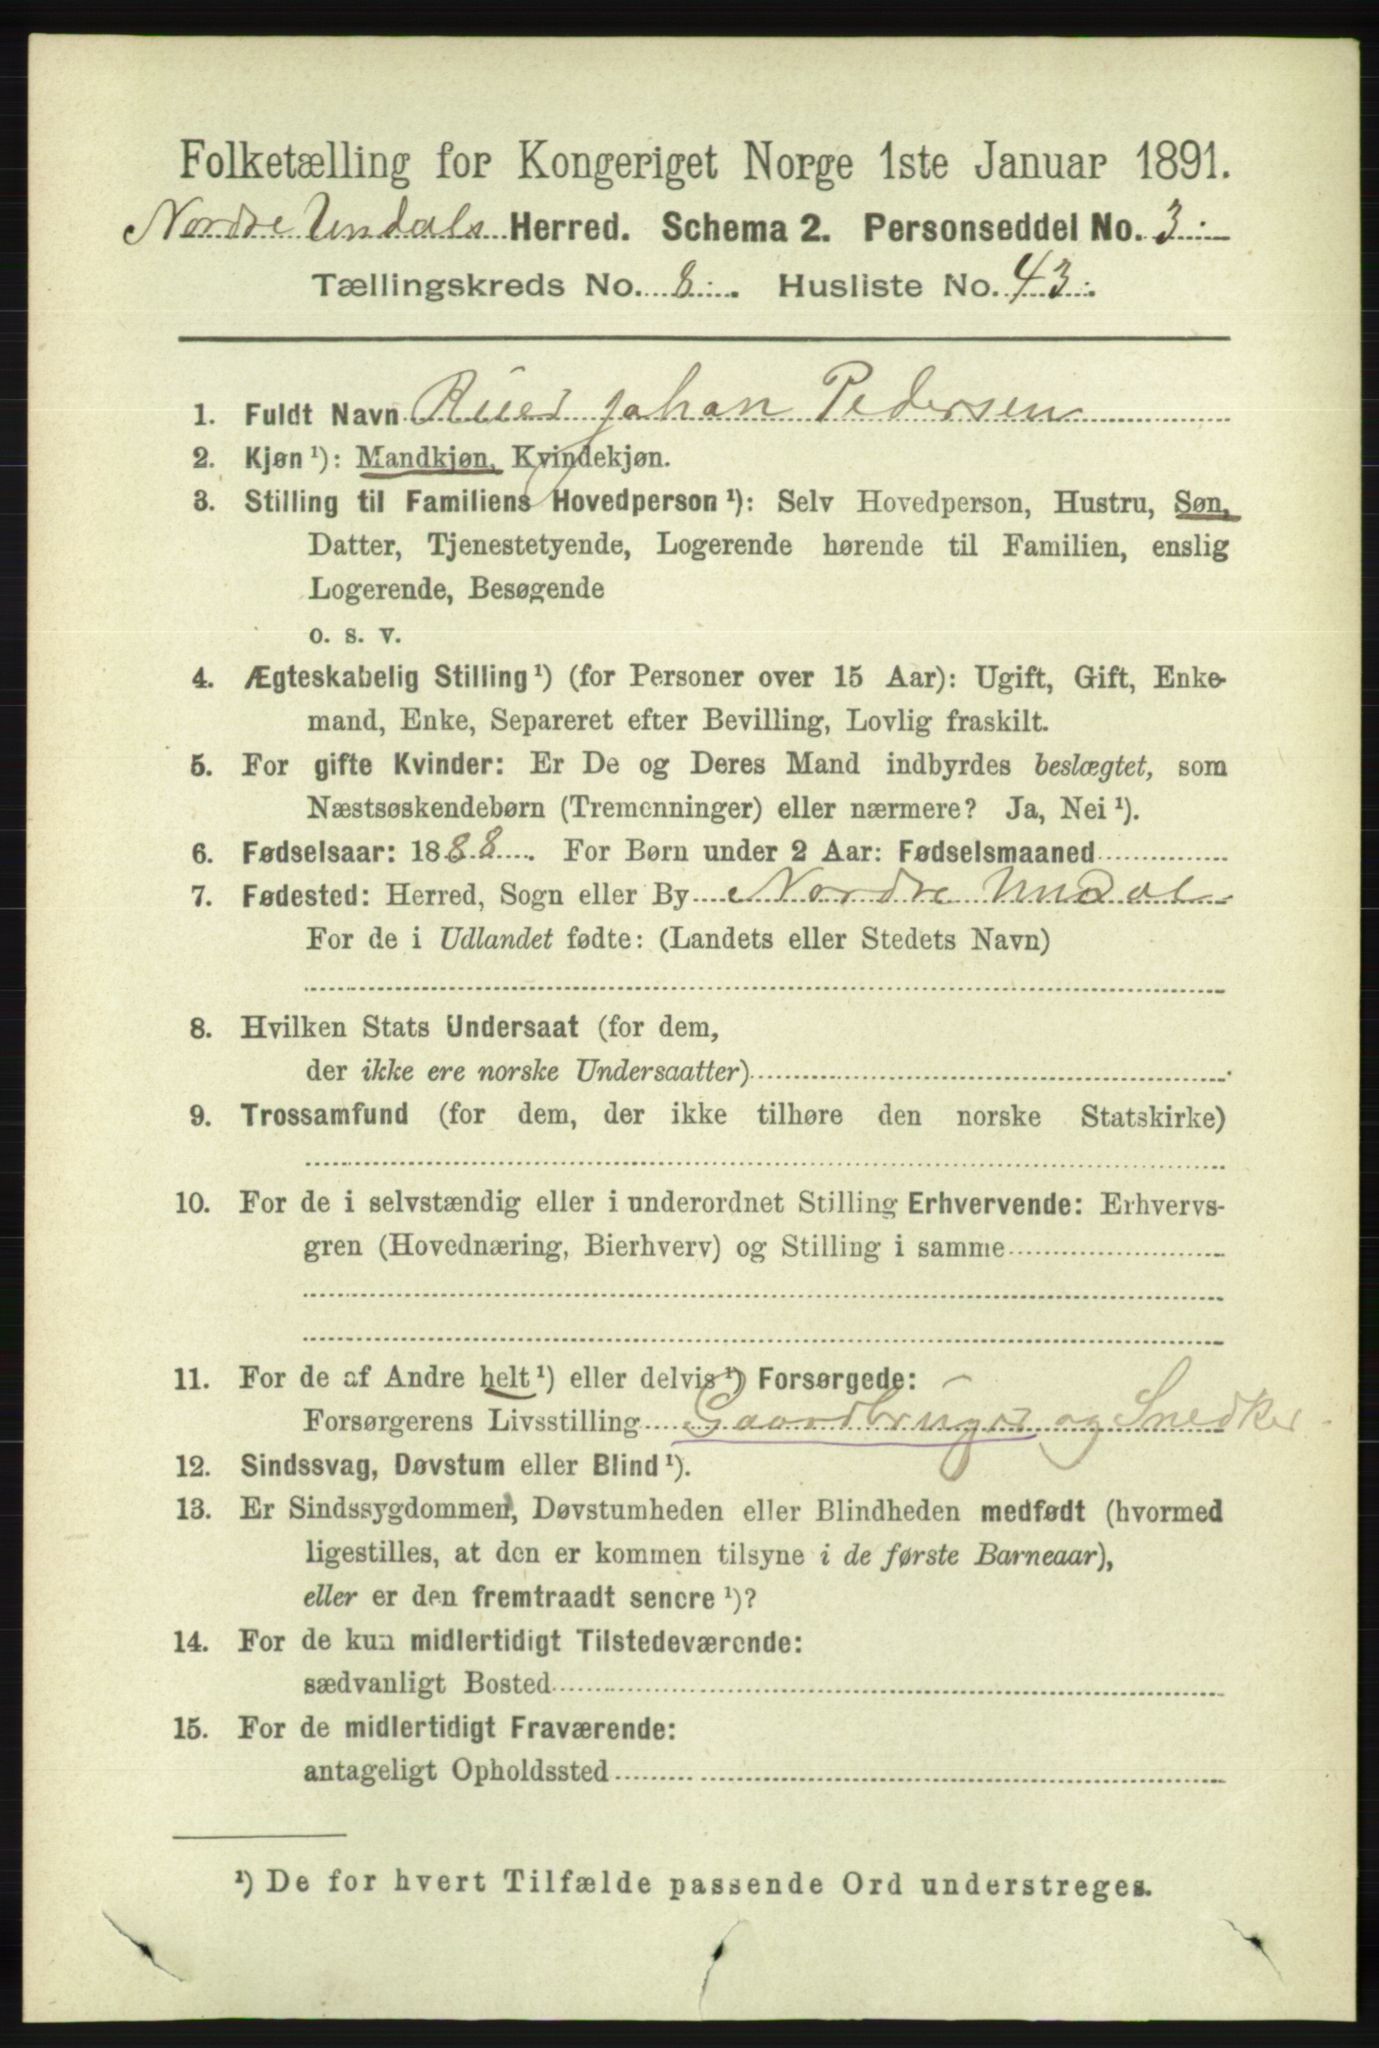 Folketælling for Kongeriget Norge 1ste Januar 1891.
Nordre Undals Herred. Schema 2. Personseddel No. 3
Tællingskreds No. 8. Husliste No. 43.
1. Fuldt Navn Johan Pedersen
2. Kjøn ¹): Mandkjøn, Kvindekjøn.
3. Stilling til Familiens Hovedperson ¹): Selv Hovedperson, Hustru, Søn,
Datter, Tjenestetyende, Logerende hørende til Familien, enslig
Logerende, Besøgende
o. s. v.
4. Ægteskabelig Stilling ¹) (for Personer over 15 Aar): Ugift, Gift, Enke-
mand, Enke, Separeret efter Bevilling, Lovlig fraskilt.
5. For gifte Kvinder: Er De og Deres Mand indbyrdes beslægtet, som
Næstsøskendebørn (Tremenninger) eller nærmere? Ja, Nei ¹).
6. Fødselsaar: 1888. For Børn under 2 Aar: Fødselsmaaned
7. Fødested: Herred, Sogn eller By Nordre Undal
For de i Udlandet fødte: (Landets eller Stedets Navn)
8. Hvilken Stats Undersaat (for dem,
der ikke ere norske Undersaatter)
9. Trossamfund (for dem, der ikke tilhøre den norske Statskirke)
10. For de i selvstændig eller i underordnet Stilling Erhvervende: Erhvervs-
gren (Hovednæring, Bierhverv) og Stilling i samme
11. For de af Andre helt ¹) eller delvis ¹) Forsørgede:
Forsørgerens Livsstilling Gaardbruger og Snedker
12. Sindssvag, Døvstum eller Blind ¹).
13. Er Sindssygdommen, Døvstumheden eller Blindheden medfødt (hvormed
ligestilles, at den er kommen tilsyne i de første Barneaar),
eller er den fremtraadt senere ¹)?
14. For de kun midlertidigt Tilstedeværende:
sædvanligt Bosted
15. For de midlertidigt Fraværende:
antageligt Opholdssted
¹) De for hvert Tilfælde passende Ord understreges.